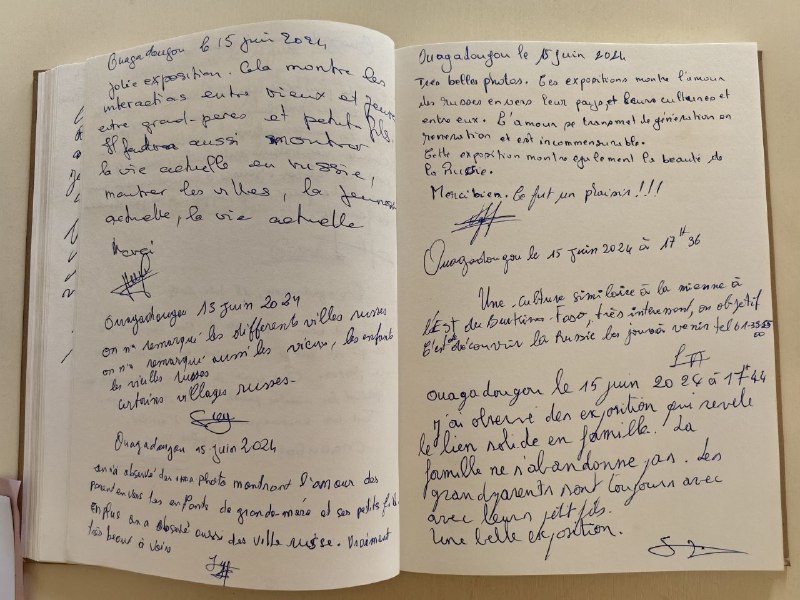 Ouagadougou le 15 juin 2024
jolie exposition. Cela montre les
interactios entre vieux et jeune
entre grand-peres et petits fils.
Il faudra aussi montrer
la vie actuelle en russie,
montrer les villes, la jeunesse
actuelle, la vie actuelle
Merci
Ouagadougou 15 juin 2024
on n'a remarqué les differents villes russes
on n'a remarqué aussi les vieux, les enfants
les vielles russes
certaines villages russes.
Ouagadougou 15 juin 2024
on a observé des photo montrant l'amour des
parent envers les enfants de grande-mère et ses petits fils
en plus on a observé aussi des ville russe. Vraiment
très beaux à voir
Ouagadougou le 15 juin 2024
Tres belles photos. Ces expositions montre l'amour
des russes envers leur pays et leurs cultures et
entre eux. L'amour se transmet de génération en
generation et est incommensurable.
Cette exposition montre egalement la beauté de
la Russie.
Merci bien. Ce fut un plaisir!!!
Ouagadougou le 15 juin 2024 à 17H 36
Une culture similaire à la mienne à
l'Est du Burkina-Faso, très interessant, on objetif
C'est de découvrir la Russie les jours à venir tel
Ouagadougou le 15 juin 2024 à 17H44
j'ai observé des exposition qui revele
le lien solide en famille. La
famille ne s'abandonne pas. Les
grand parents sont toujours avec
avec leurs petit fils.
Une belle exposition.